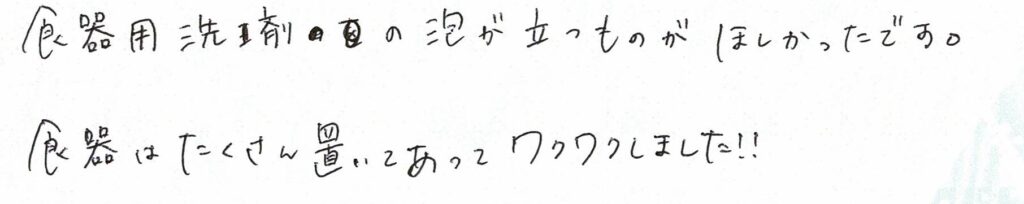 食器用洗剤の泡が立つものがほしかったです。
食器はたくさん置いてあってワクワクしました!!